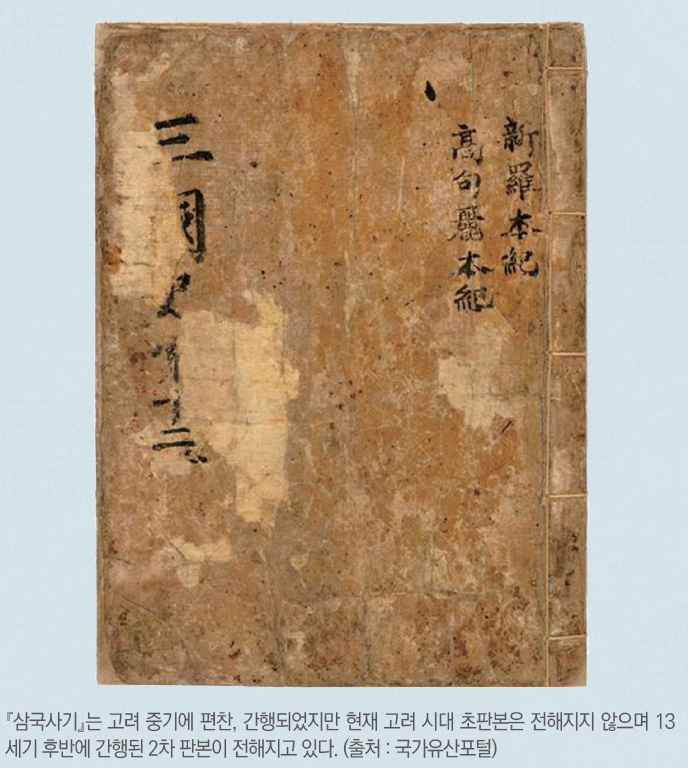 新羅本紀
高句麗本紀
三國史
十二
『삼국사기』는 고려 중기에 편찬, 간행되었지만 현재 고려 시대 초판본은 전해지지 않으며 13
세기 후반에 간행된 2차 판본이 전해지고 있다. (출처 : 국가유산포털)